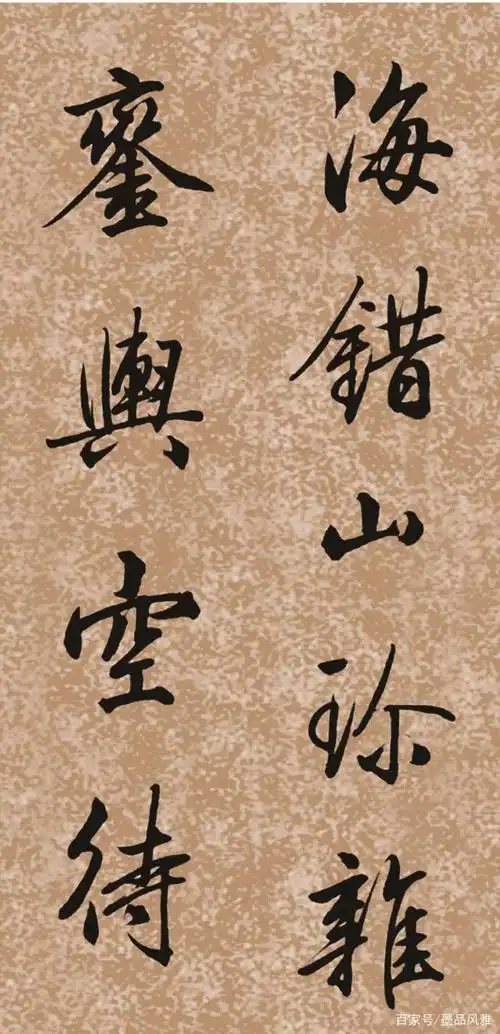 海錯山珍雜
鑾輿空待
百家号/墨品风雅